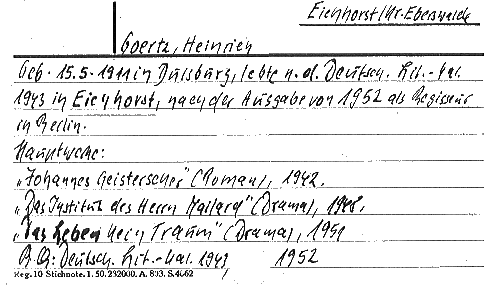 Eichhorst/Kr. Eberswalde
Goertz, Heinrich
Geb. 15.5.1911 in Duisburg, lebte n. d. Deutsch. Lit.-Kal.
1943 in Eichhorst, nach der Ausgabe von 1952 als Regisseur
in Berlin.
Hauptwerke:
„Johannes Geisterseher" (Roman), 1942.
„Das Institut des Herrn Maillard" (Drama), 1948.
„Das Leben kein Traum" (Drama), 1951
Deutsch. Lit.-Kal. 1943
1952
Reg. 10 Stichnote. 1. 50. 232000. A. 893. S. 4662